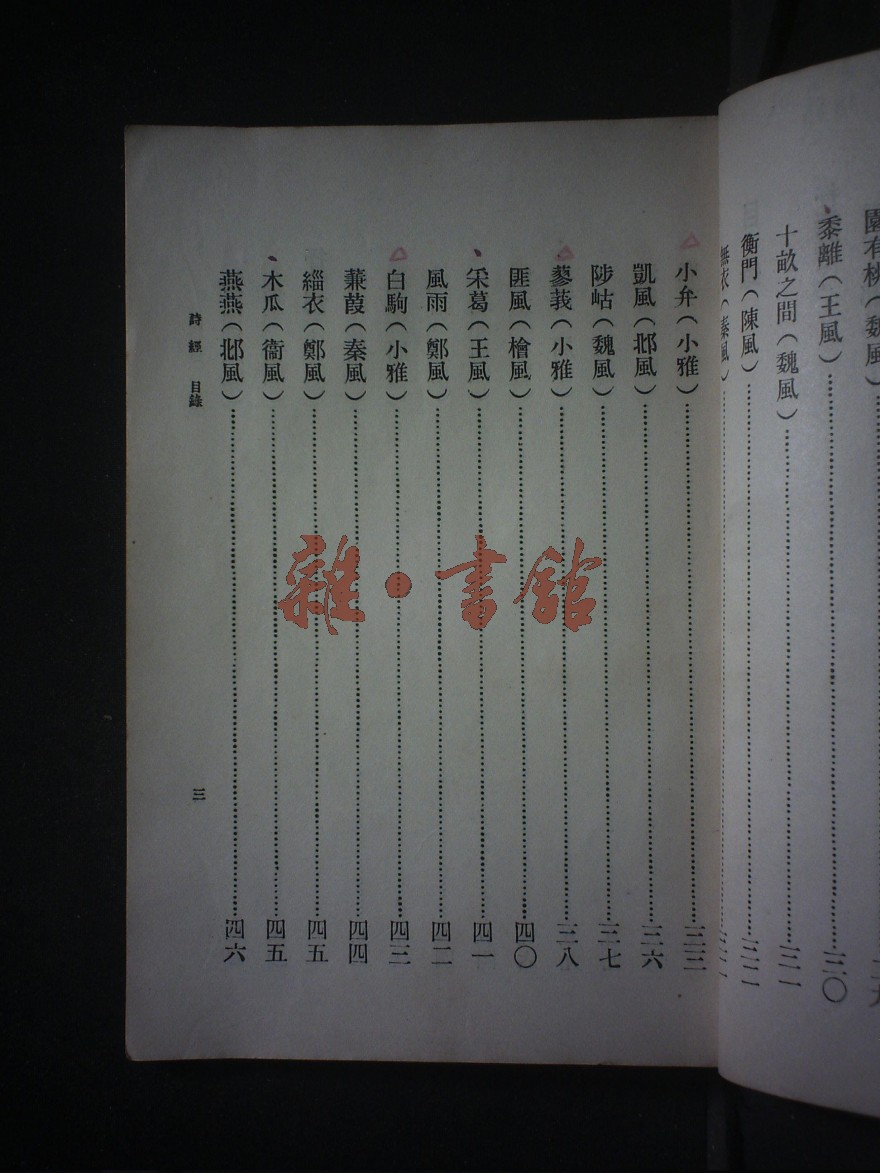 園有桃(魏風)
黍離(王風)……三〇
十畝之間(魏風)……三一
衡門(陳風)……三二
無衣(秦風)
小弁(小雅)……三三
凱風(邶風)……三六
陟岵(魏風)……三七
蓼莪(小雅)……三八
匪風(檜風)……四〇
采葛(王風)……四一
風雨(鄭風)……四二
白駒(小雅)……四三
蒹葭(秦風)……四四
緇衣(鄭風)……四五
木瓜(衞風)……四五
燕燕(邶風)……四六
詩經 目錄 三
雜·書館